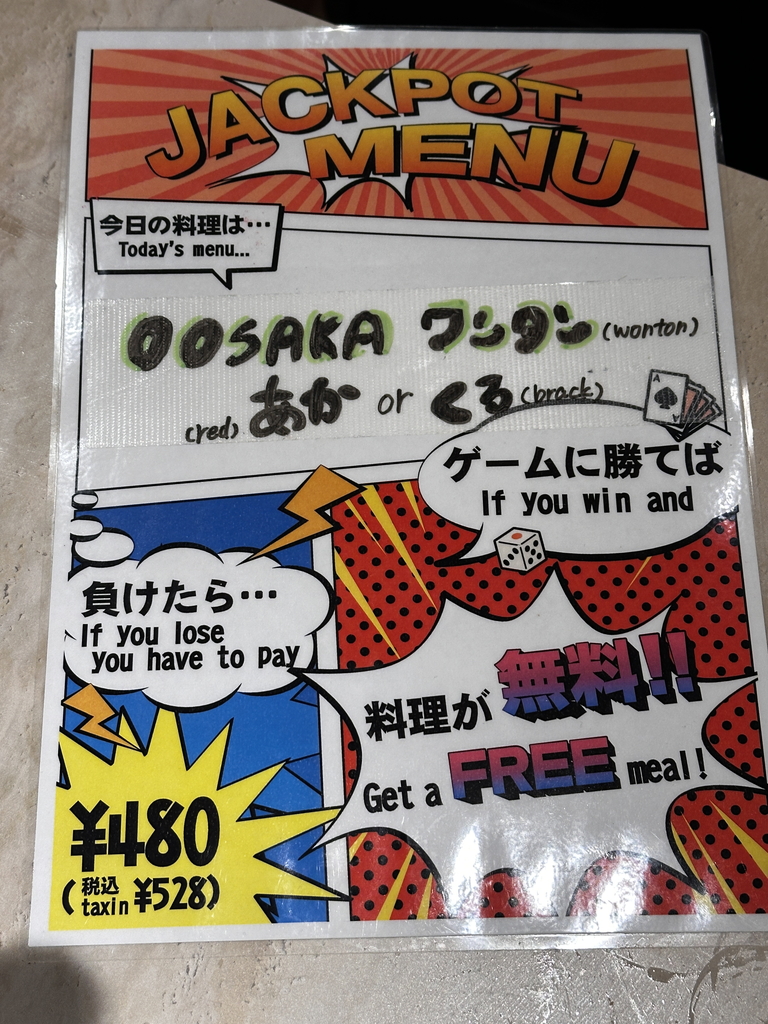 JACKPOT
MENU
今日の料理は…
Today's menu...
OOSAKA ワンタン (wonton)
(red) あか or くろ (brack)
A
A
ゲームに勝てば
If you win and
負けたら…
If you lose
you have to pay
料理が 無料!!
Get a FREE meal!
¥480
(税込 taxin ¥528)